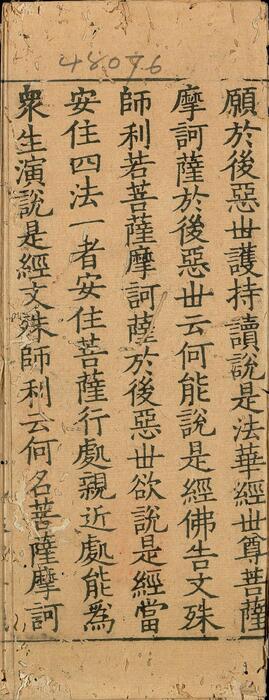 48076
願於後惡世護持讀說是法華經世尊菩薩
摩訶薩於後惡世云何能說是經佛告文殊
師利若菩薩摩訶薩於後惡世欲說是經當
安住四法一者安住菩薩行處親近處能為
衆生演說是經文殊師利云何名菩薩摩訶